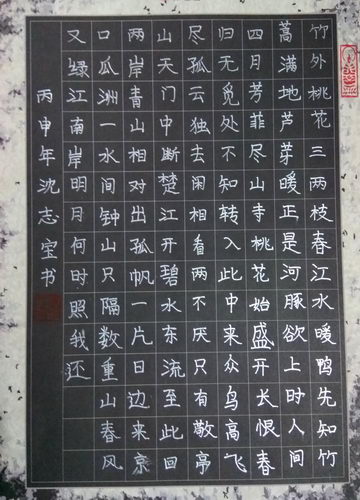 竹外桃花三两枝春江水暖鸭先知竹
蒿满地芦芽暖正是河豚欲上时人间
四月芳菲尽山寺桃花始盛开长恨春
归无觅处不知转入此中来众鸟高飞
尽孤云独去闲相看两不厌只有敬亭
山天门中断楚江开碧水东流至此回
两岸青山相对出孤帆一片日边来京
口瓜洲一水间钟山只隔数重山春风
又绿江南岸明月何时照我还
丙申年沈志宝书